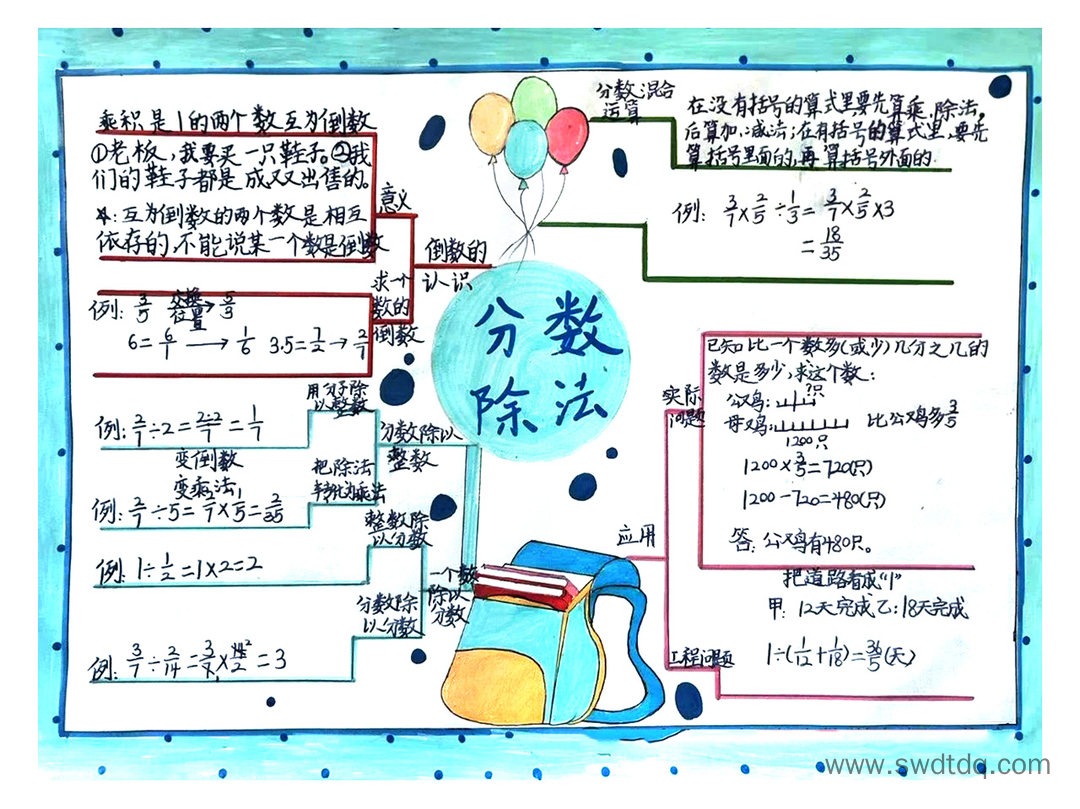 分数
除法
倒数的
认识
意义
乘积是1的两个数互为倒数
①老板,我要买一只鞋子。②我
们的鞋子都是成双出售的。
互为倒数的两个数是相互
依存的,不能说某一个数是倒数
求一个
数的
倒数
例: 3/5 交换位置→ 5/3
6=6/1→1/6 3.5=7/2→2/7
分数除以
整数
用分子除
以整数
例: 2/7÷2=2÷2/7=1/7
把除法
转化为乘法
变倒数
变乘法
例: 2/7÷5=2/7×1/5=2/35
一个数
除以
分数
整数除
以分数
例: 1÷1/2=1×2=2
分数除
以分数
例: 3/7÷2/14=3/7×14/2=3
分数混合
运算
在没有括号的算式里要先算乘、除法,
后算加、减法;在有括号的算式里,要先
算括号里面的,再算括号外面的.
例: 3/7×2/5÷1/3=3/7×2/5×3
=18/35
应用
实际
问题
已知比一个数多(或少)几分之几的
数是多少,求这个数:
公鸡: ?只
母鸡: 比公鸡多3/5
1200只
1200×3/5=720(只)
1200-720=480(只)
答: 公鸡有480只。
工程问题
把道路看成"1"
甲: 12天完成 乙: 18天完成
1÷(1/12+1/18)=36/5(天)
www.swdtdq.com